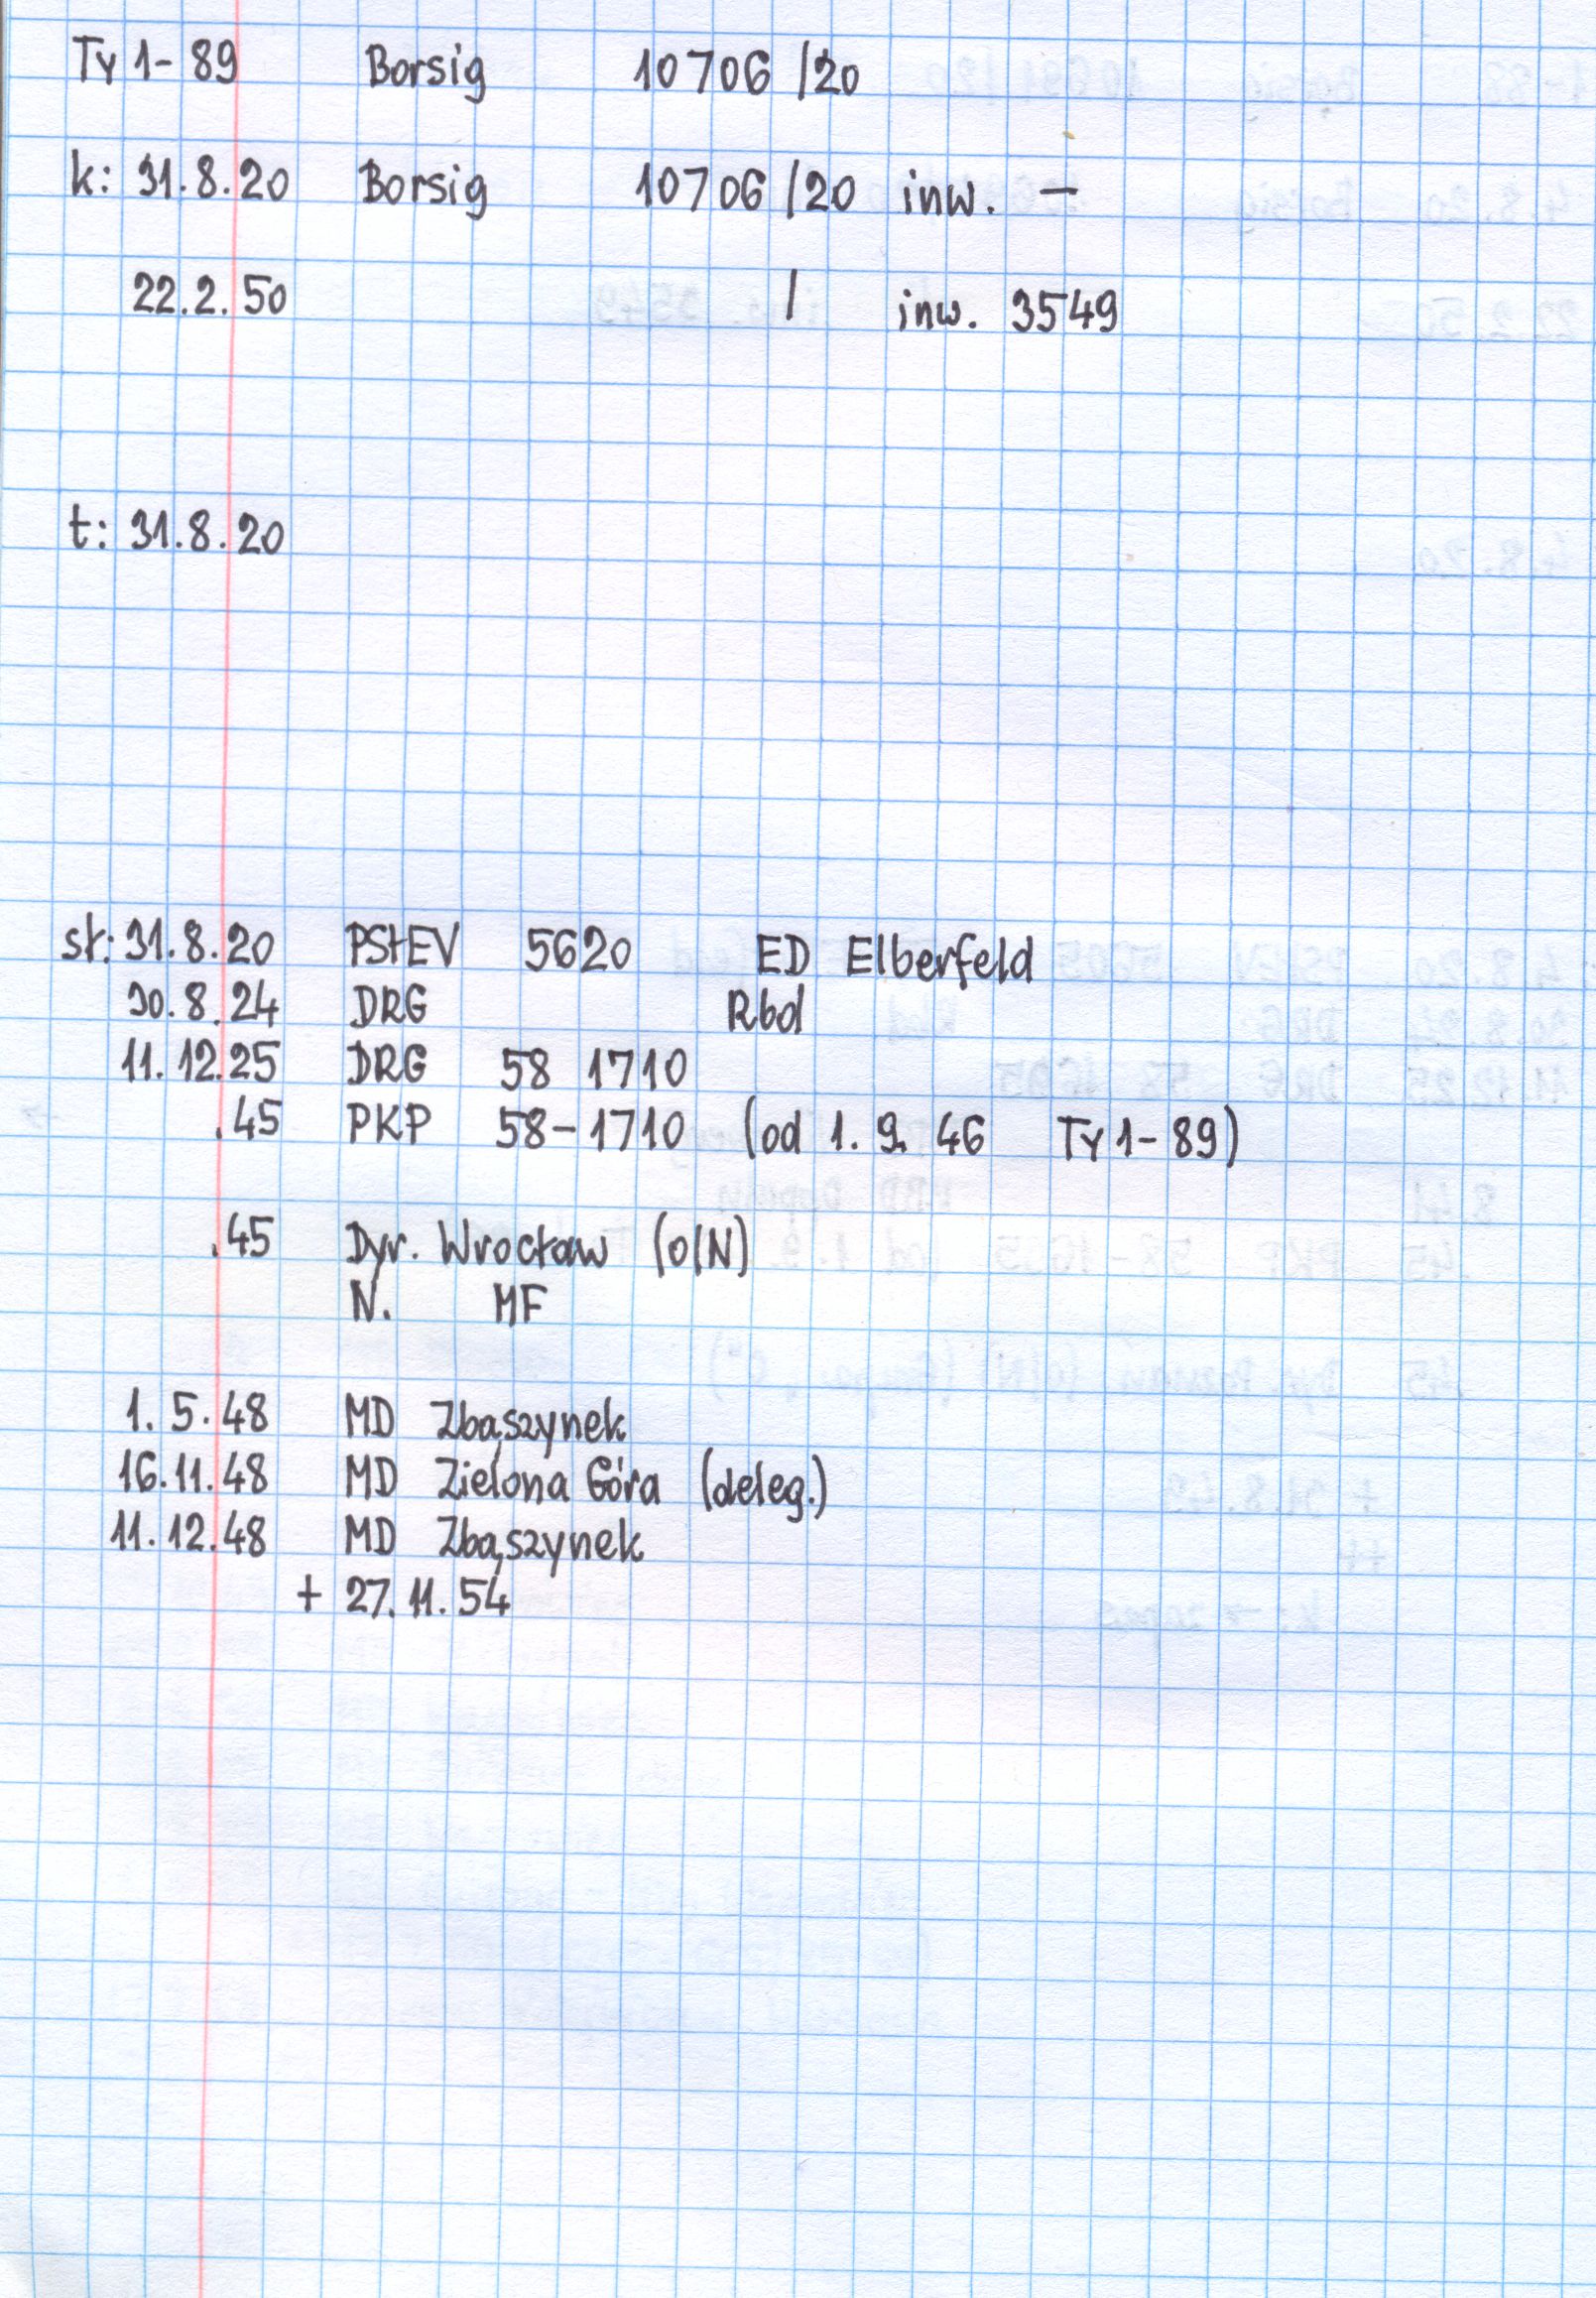 Ty 1-89 Borsig 10706 /20
k: 31.8.20 Borsig 10706 /20 inw. —
22.2.50 / inw. 3549
t: 31.8.20
st: 31.8.20 PStEV 5620 ED Elberfeld
30.8.24 DRG Rbd
11.12.25 DRG 58 1710
.45 PKP 58-1710 (od 1.9.46 Ty 1-89)
.45 Dyr. Wrocław (o/N)
N. MF
1.5.48 MD Zbąszynek
16.11.48 MD Zielona Góra (deleg.)
11.12.48 MD Zbąszynek
+ 27.11.54